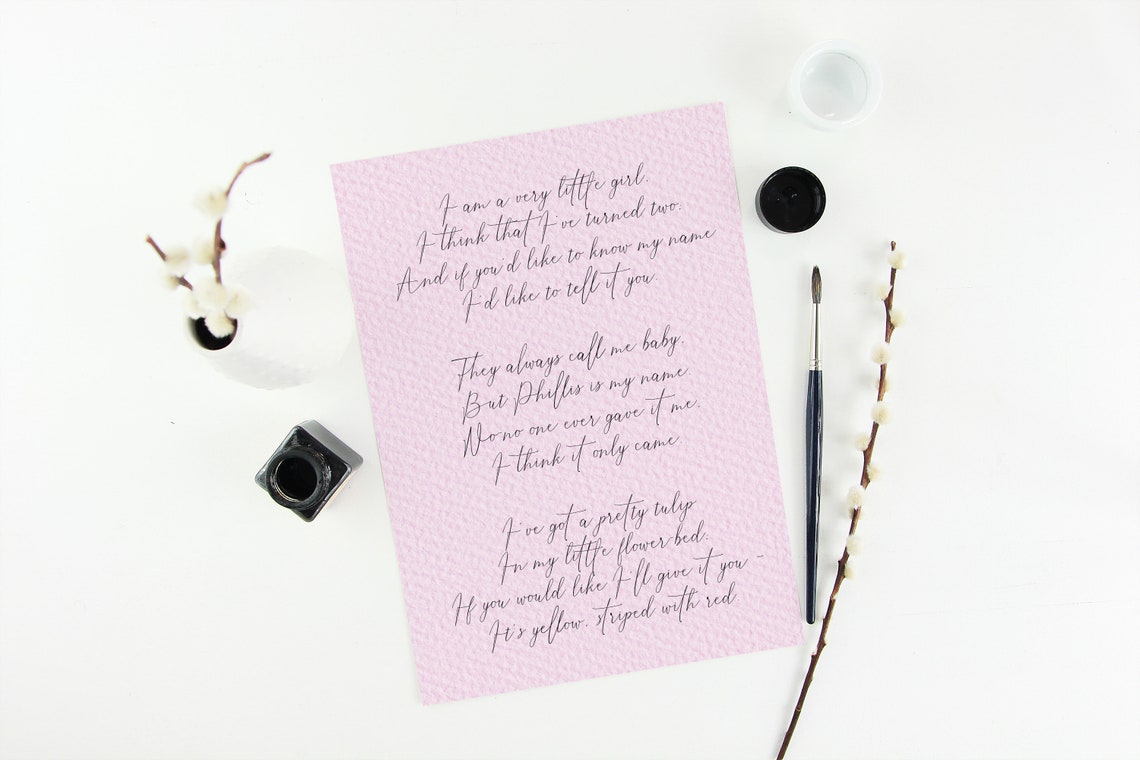 I am a very little girl,
I think that I've turned two;
And if you'd like to know my name
I'd like to tell it you.
They always call me baby,
But Phillis is my name.
No-no one ever gave it me,
I think it only came.
I've got a pretty tulip
In my little flower-bed;
If you would like I'll give it you -
It's yellow, striped with red.